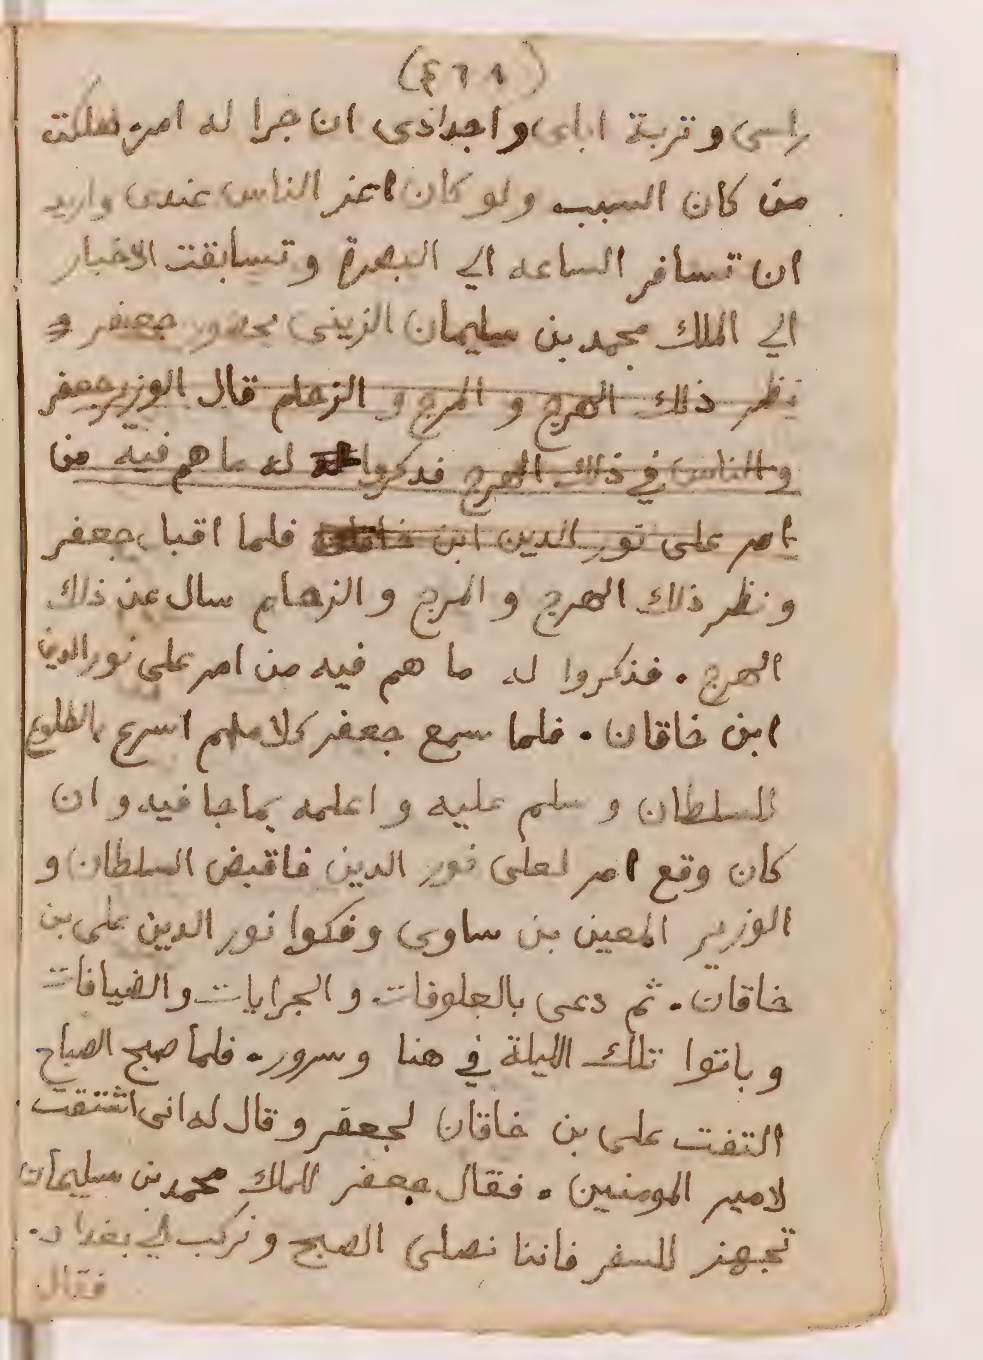 (٤٦٨)
راسى وتربة اباى واجدادى ان جرا له امر هلكت
من كان السبب ولو كان اعز الناس عندى واريد
ان تسافر الساعه الي البصرة وتسابقت الاخبار
الي الملك محمد بن سليمان الزينى بحضور جعفر و
نظر ذلك الهرج و المرج و الزحام قال الوزير جعفر
والناس في ذلك الهرج فذكروا له ما هم فيه من
امر على نور الدين ابن خاقان فلما اقبل جعفر
و نظر ذلك الهرج و المرج و الزحام سال عن ذلك
الهرج . فذكروا له ما هم فيه من امر على نور الدين
ابن خاقان . فلما سمع جعفر كلامهم اسرع بالطلوع
للسلطان و سلم عليه و اعلمه بما جا فيه و ان
كان وقع امر لعلى نور الدين فاقبض السلطان و
الوزير المعين بن ساوى وفكوا نور الدين على بن
خاقان . ثم دعى بالعلوفات و الجرايات والضيافات
وباتوا تلك الليلة في هنا وسرور . فلما صبح الصباح
التفت على بن خاقان لجعفر وقال له انى اشتقت
لامير المومنين . فقال جعفر للملك محمد بن سليمان
تجهز للسفر فاننا نصلى الصبح ونركب الي بغداد .
فقال